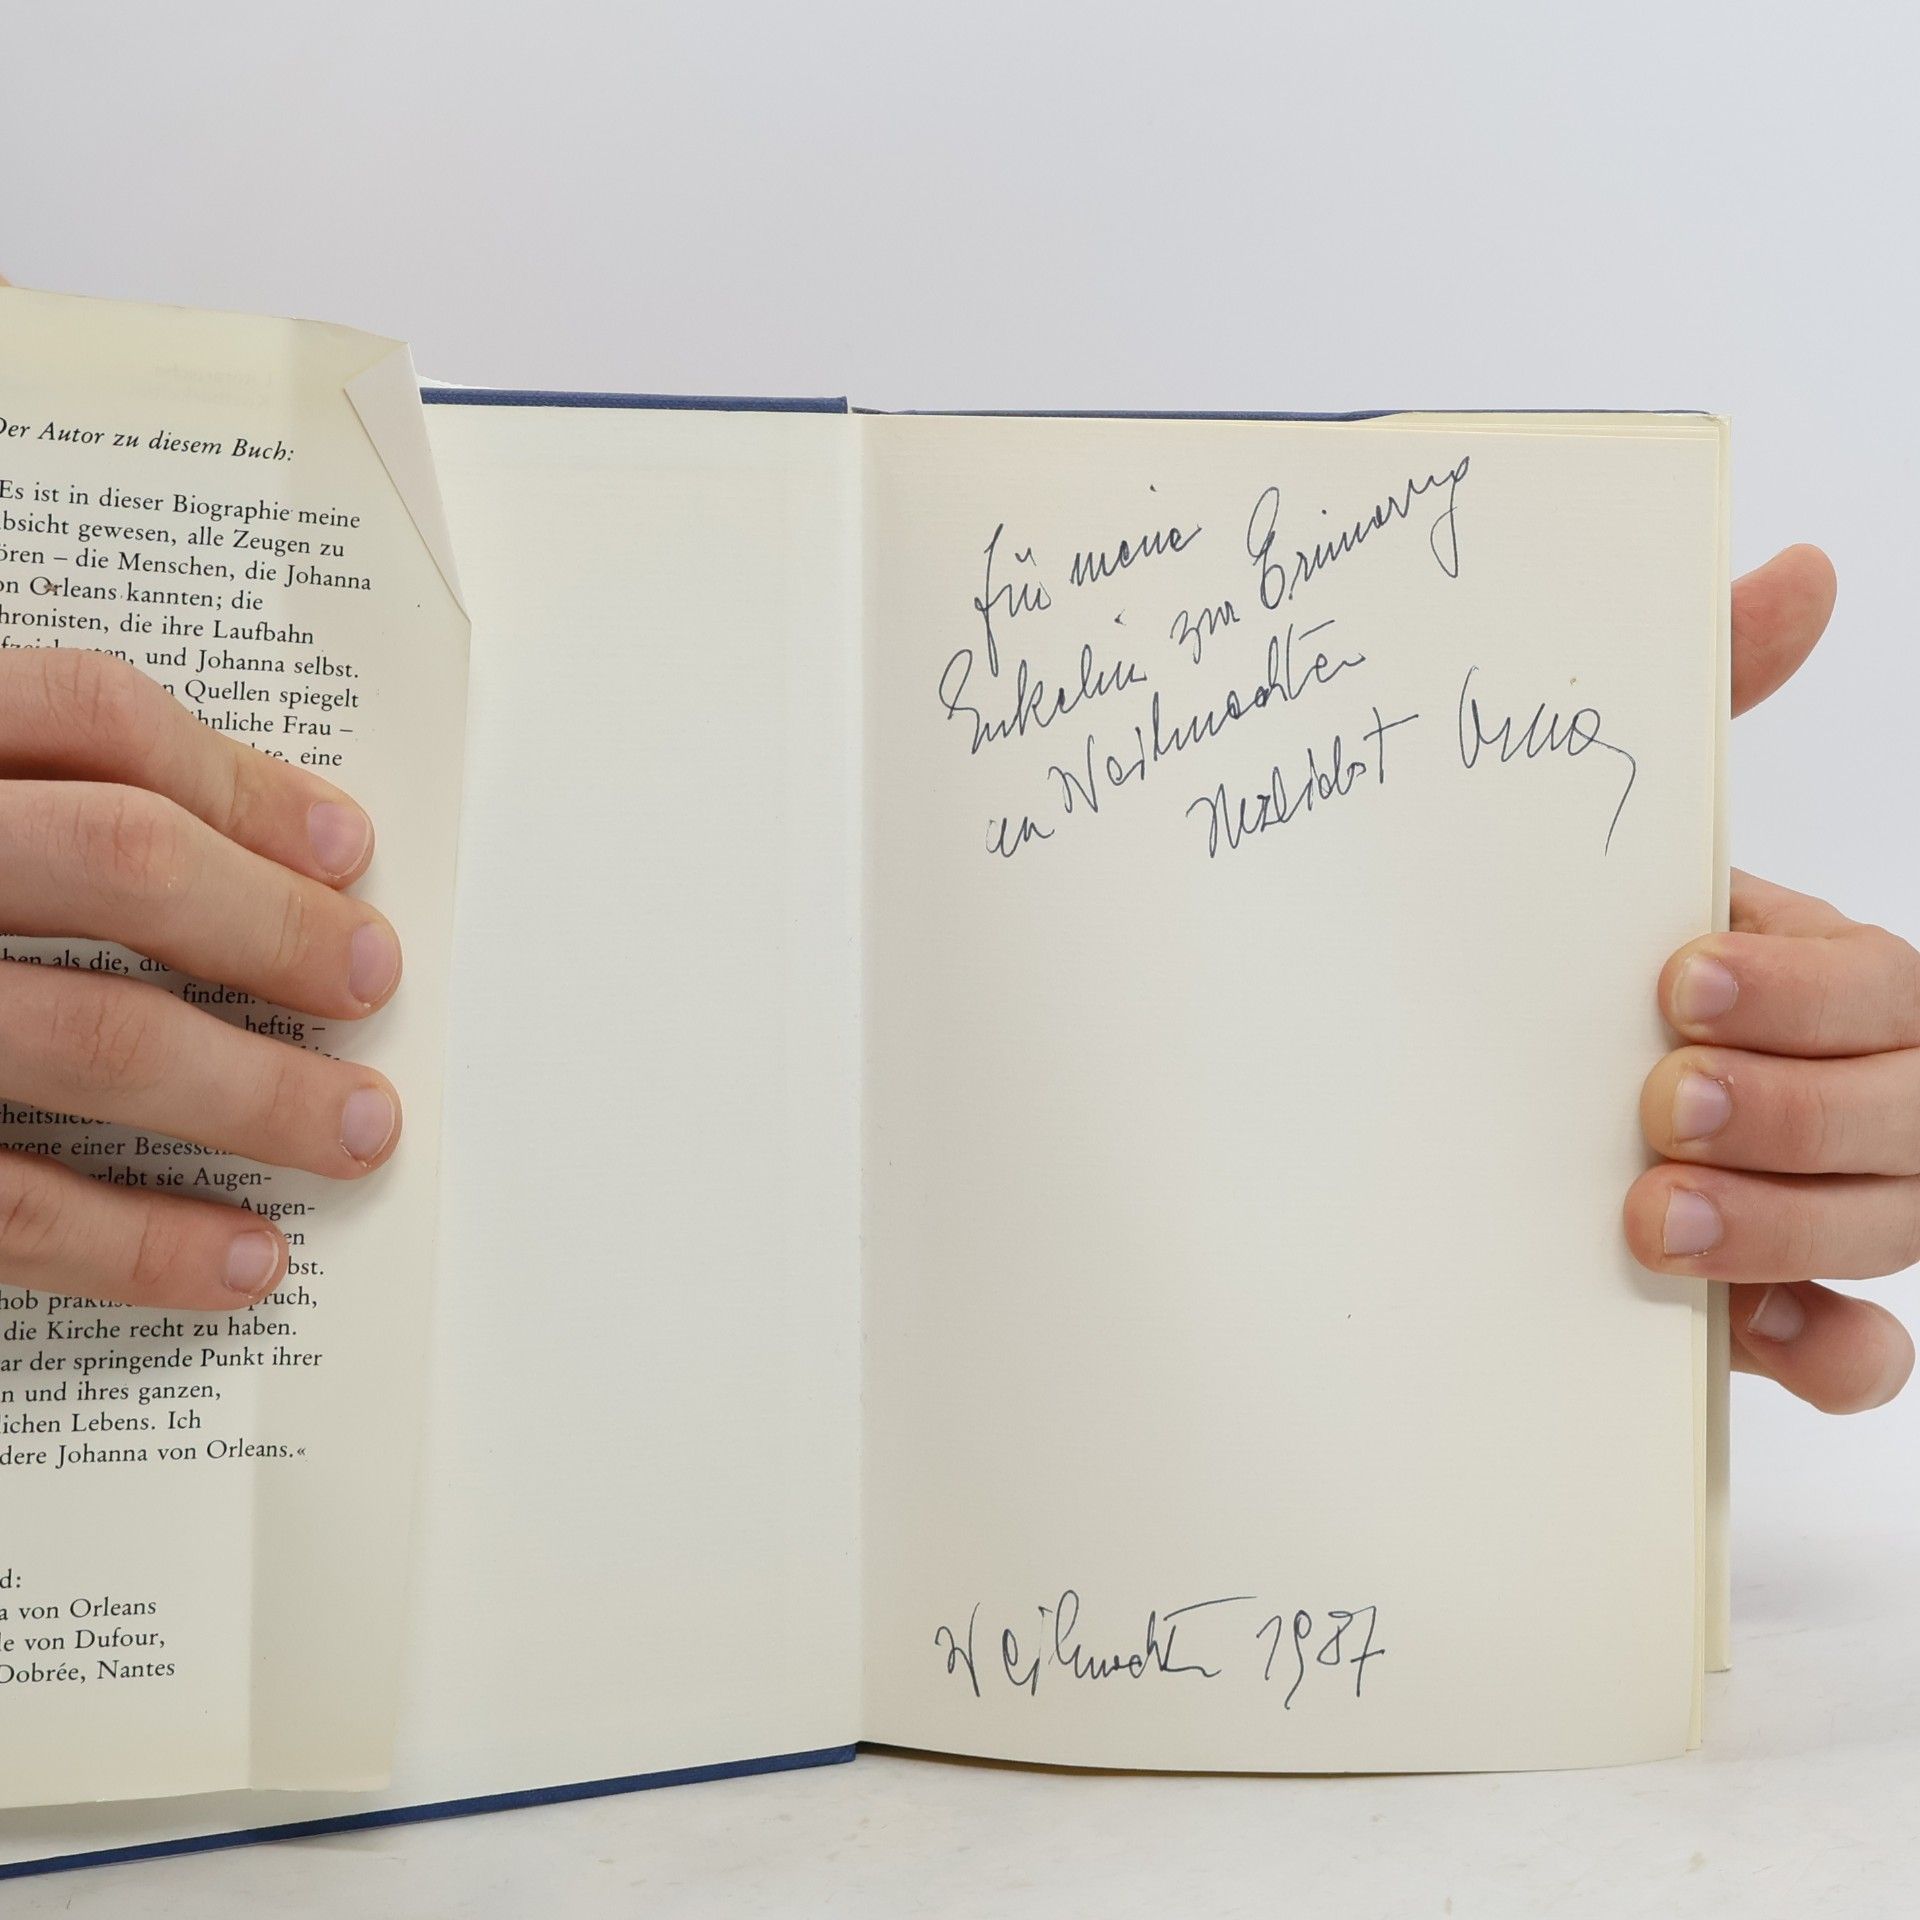 Der Autor zu diesem Buch:
Es ist in dieser Biographie meine
bsicht gewesen, alle Zeugen zu
ören – die Menschen, die Johanna
on Orleans kannten; die
hronisten, die ihre Laufbahn
n, und Johanna selbst.
n Quellen spiegelt
hnliche Frau –
te, eine
ben als die, die
finden.
heftig –
gene einer Besessen
erlebt sie Augen-
Augen-
en
bst.
hob prakti pruch,
die Kirche recht zu haben.
ar der springende Punkt ihrer
n und ihres ganzen,
lichen Lebens. Ich
dere Johanna von Orleans.«
d:
a von Orleans
le von Dufour,
Dobrée, Nantes
für meine
Enkelin zur Erinnerung
an Weihnachten
Oma
Weihnachten 1987